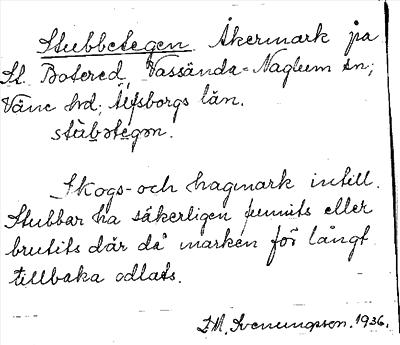 Stubbetegen. Åkermark på
St. Botered, Vassända-Naglum sn;
Väne hd; Älfsborgs län.
stùbətegən.
Skogs- och hagmark intill.
Stubbar ha säkerligen funnits eller
brutits där då marken för långt
tillbaka odlats.
I.M. Svenungsson. 1936.